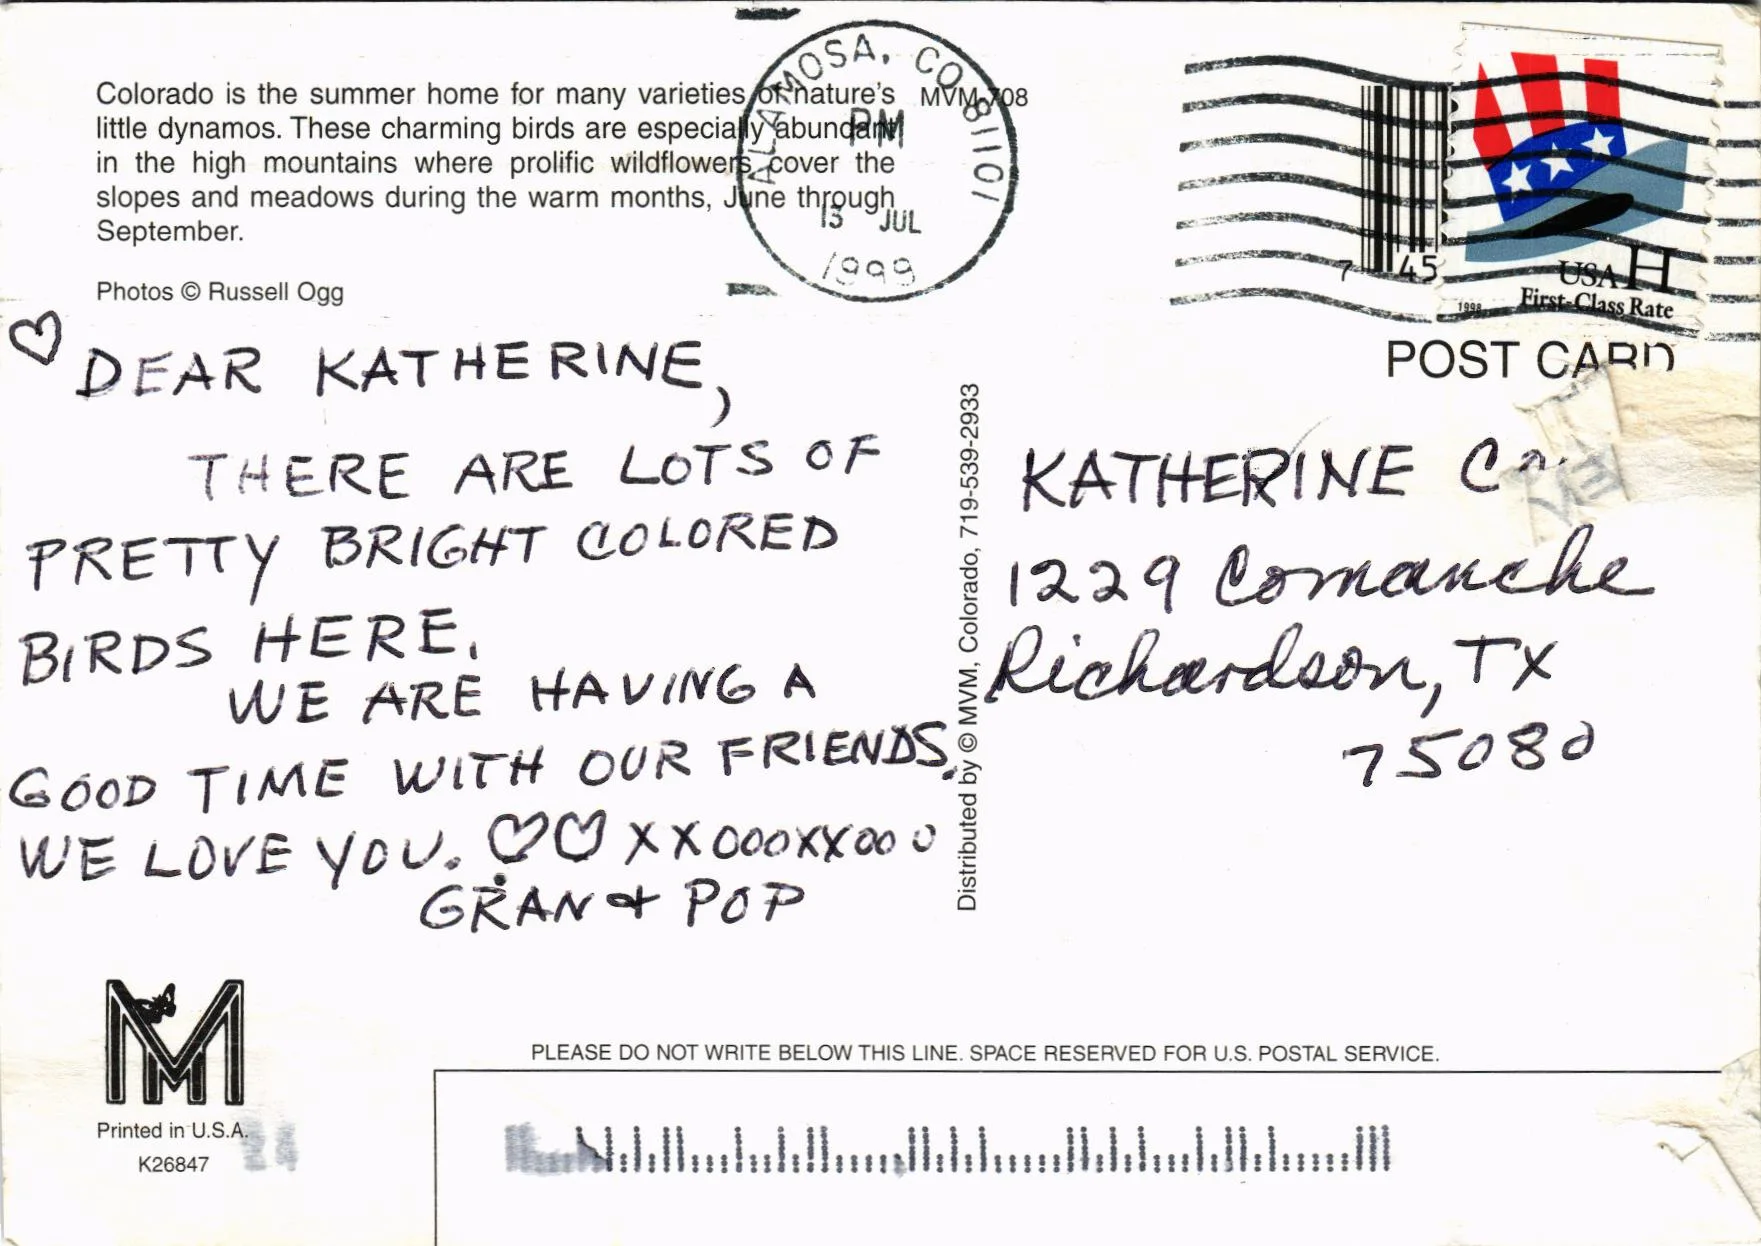 Colorado is the summer home for many varieties of nature's
little dynamos. These charming birds are especially abundant
in the high mountains where prolific wildflowers cover the
slopes and meadows during the warm months, June through
September.
MVM-708
Photos © Russell Ogg
ALAMOSA, CO 81101
PM
13 JUL
1999
7 45
USA H
1998 First-Class Rate
POST CARD
DEAR KATHERINE,
THERE ARE LOTS OF
PRETTY BRIGHT COLORED
BIRDS HERE.
WE ARE HAVING A
GOOD TIME WITH OUR FRIENDS.
WE LOVE YOU. ♡♡ XXOOOXXOOO
GRAN & POP
Distributed by © MVM, Colorado, 719-539-2933
KATHERINE
1229 Comanche
Richardson, TX
75080
MM
Printed in U.S.A.
K26847
PLEASE DO NOT WRITE BELOW THIS LINE. SPACE RESERVED FOR U.S. POSTAL SERVICE.